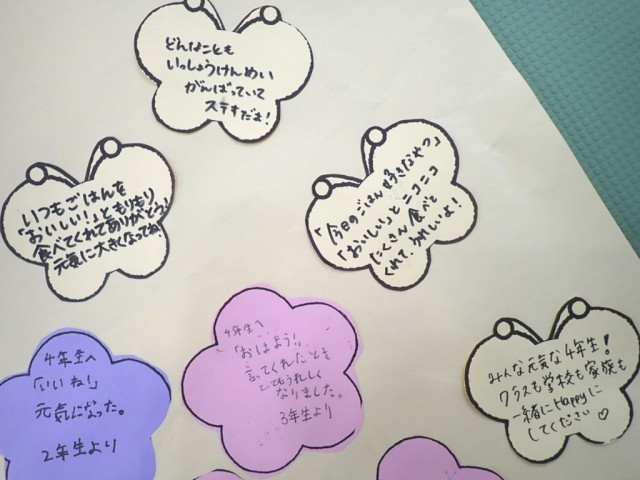 どんなことも
いっしょうけんめい
がんばっていて
ステキだよ!
いつもごはんを
「おいしい!」ともりもり
食べてくれてありがとう!
元気に大きくなってね。
「今日のごはん好きなやつ」
「おいしい」とニコニコ
たくさん食べて
くれて、うれしいよ!
4年生へ
「いいね!」
元気になった。
2年生より
4年生へ
「おはよう!」
言ってくれたことを
とてもうれしく
なりました。
3年生より
みんな元気な4年生!
クラスも学校も家族も
一緒にHappyに
してください♡